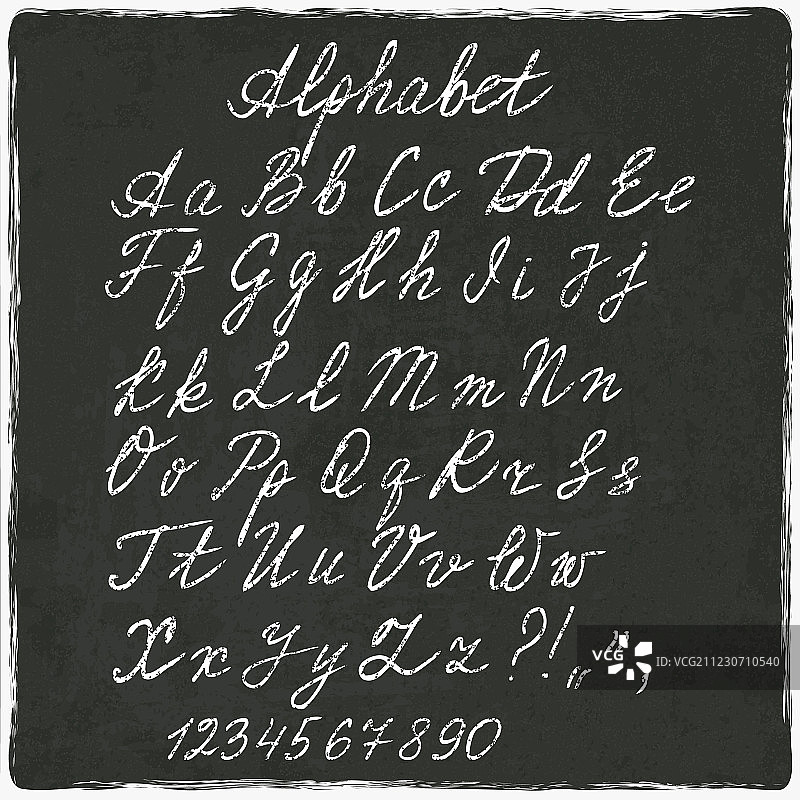 Alphabet
Aa Bb Cc Dd Ee
Ff Gg Hh Ii Jj
Kk Ll Mm Nn
Oo Pp Qq Rr Ss
Tt Uu Vv Ww
Xx Yy Zz ?! „
VCG ID: VCG211230710540
1234567890